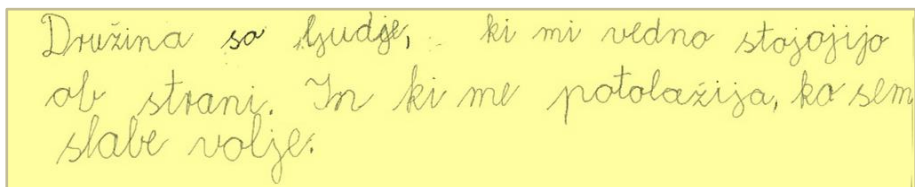 Družina so ljudje, ki mi vedno stojojijo
ob strani. In ki me potolažija, ko sem
slabe volje.